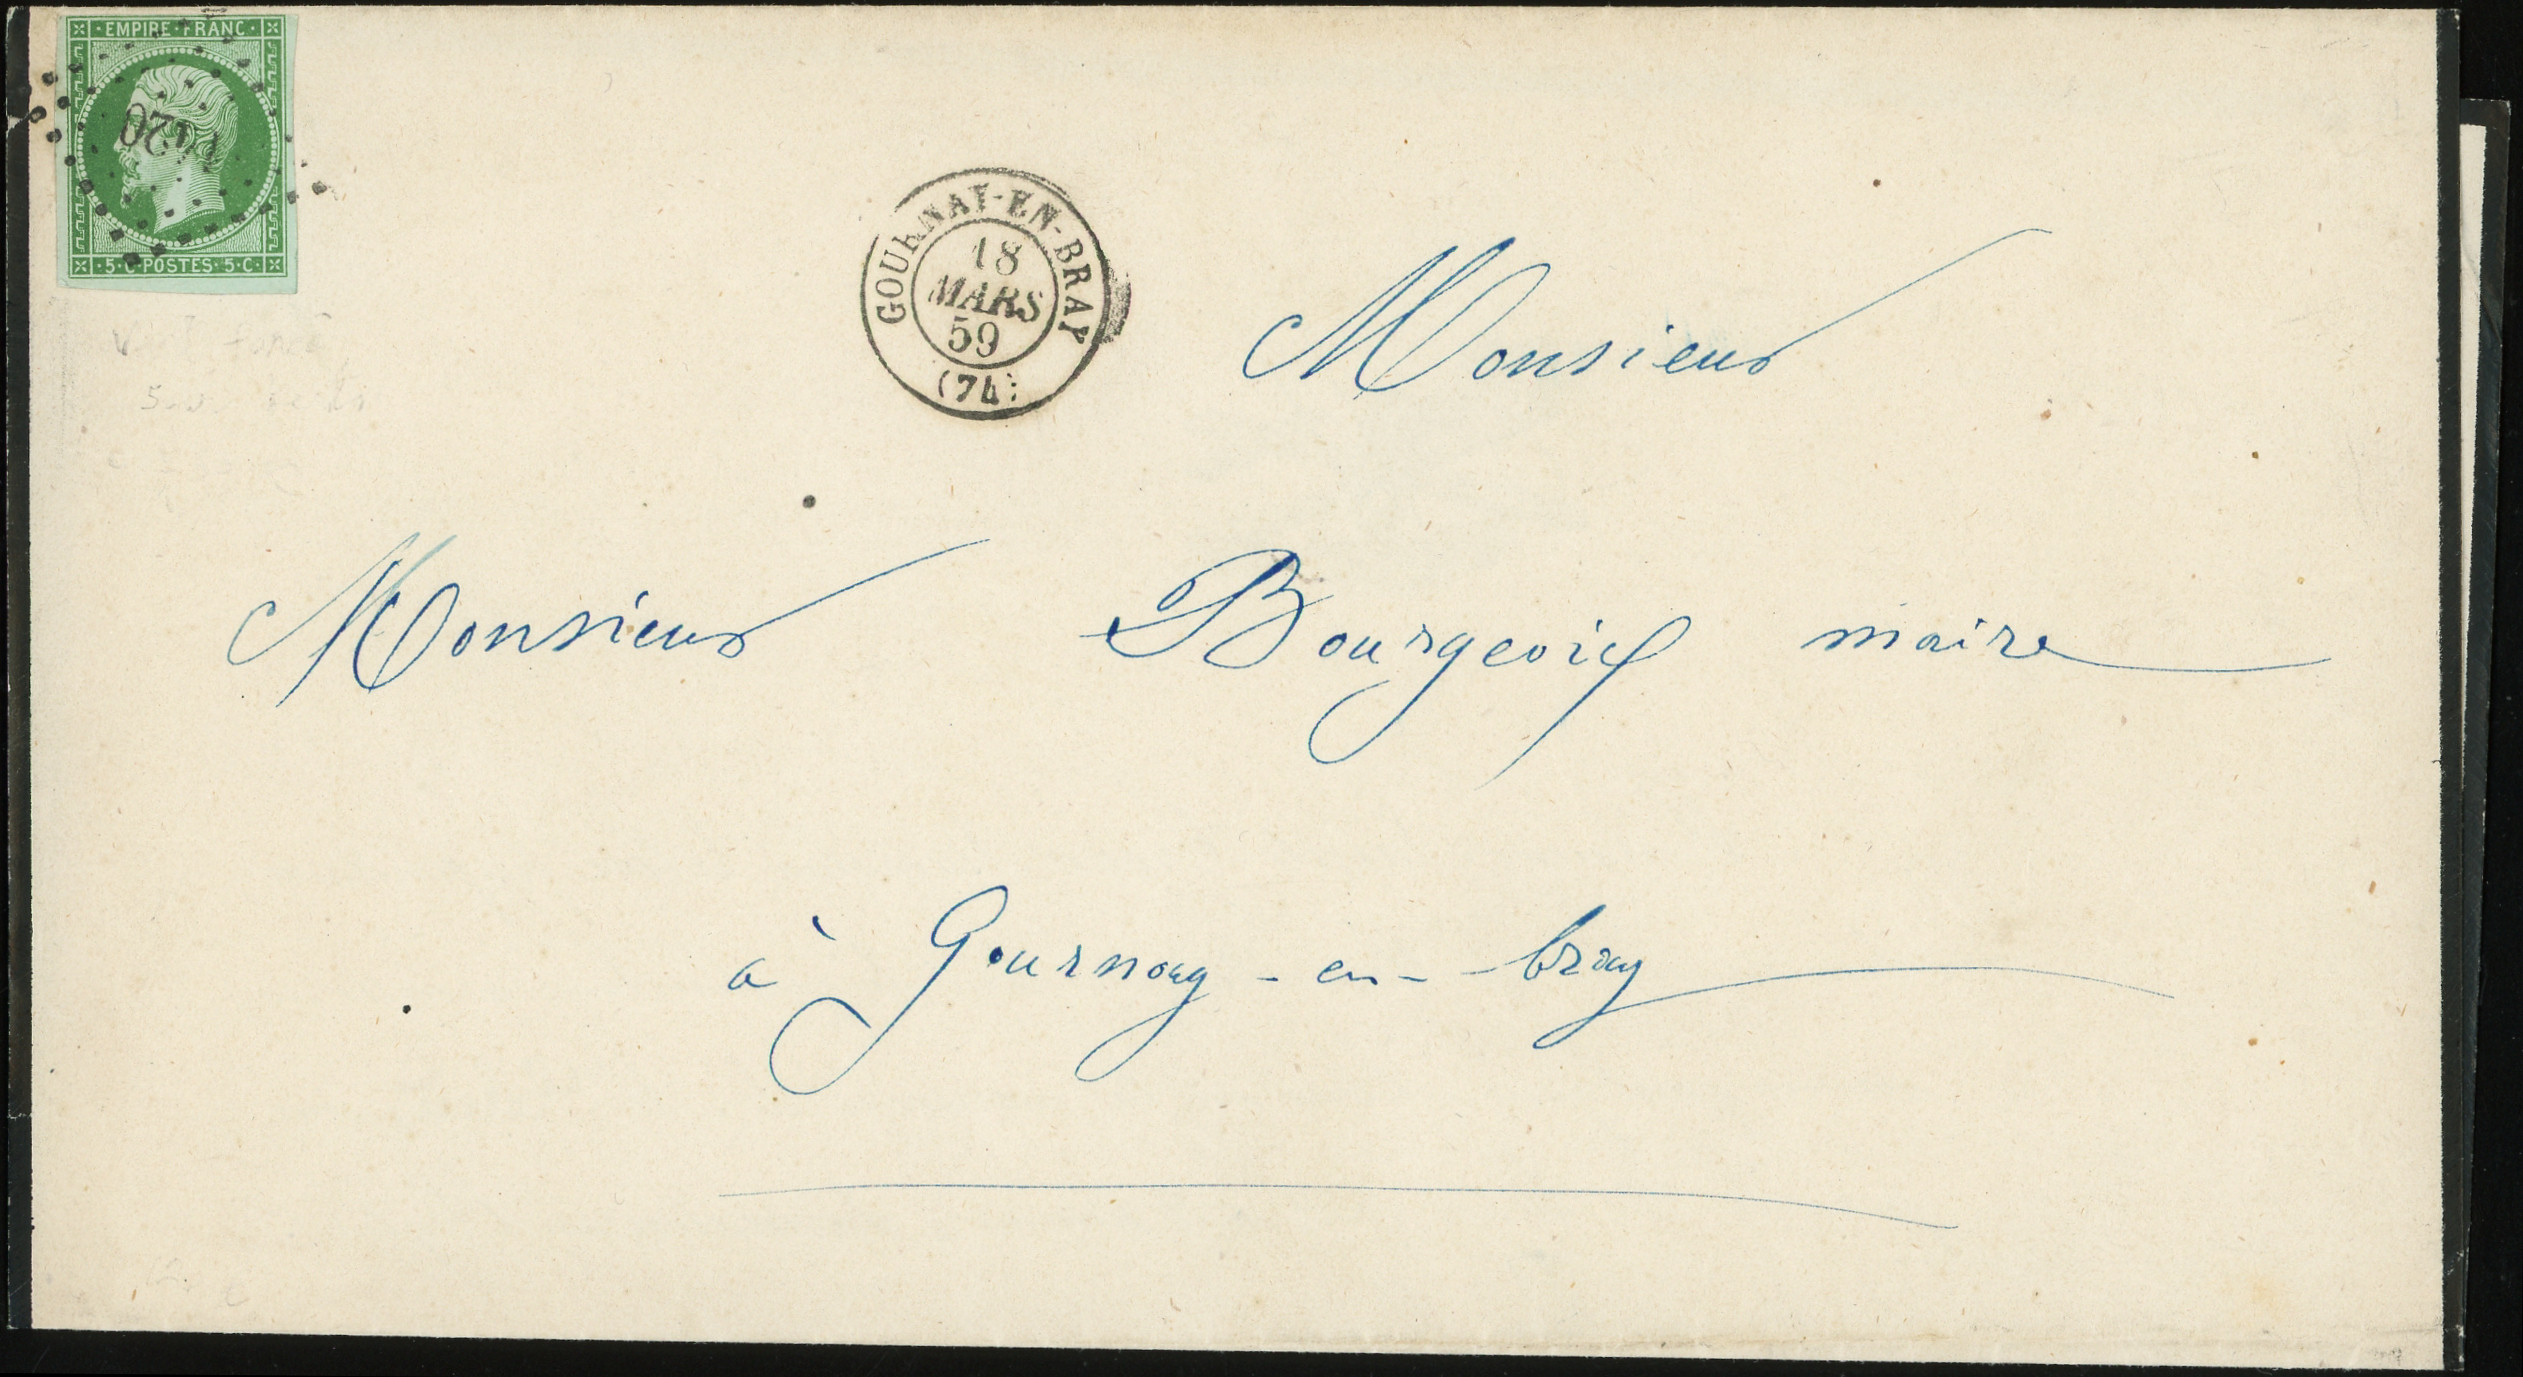 EMPIRE·FRANC·
·5·C·POSTES·5·C·
GOURNAY-EN-BRAY
18
MARS
59
(74)
Monsieur
Monsieur Bourgeois maire
à Gournay-en-bray